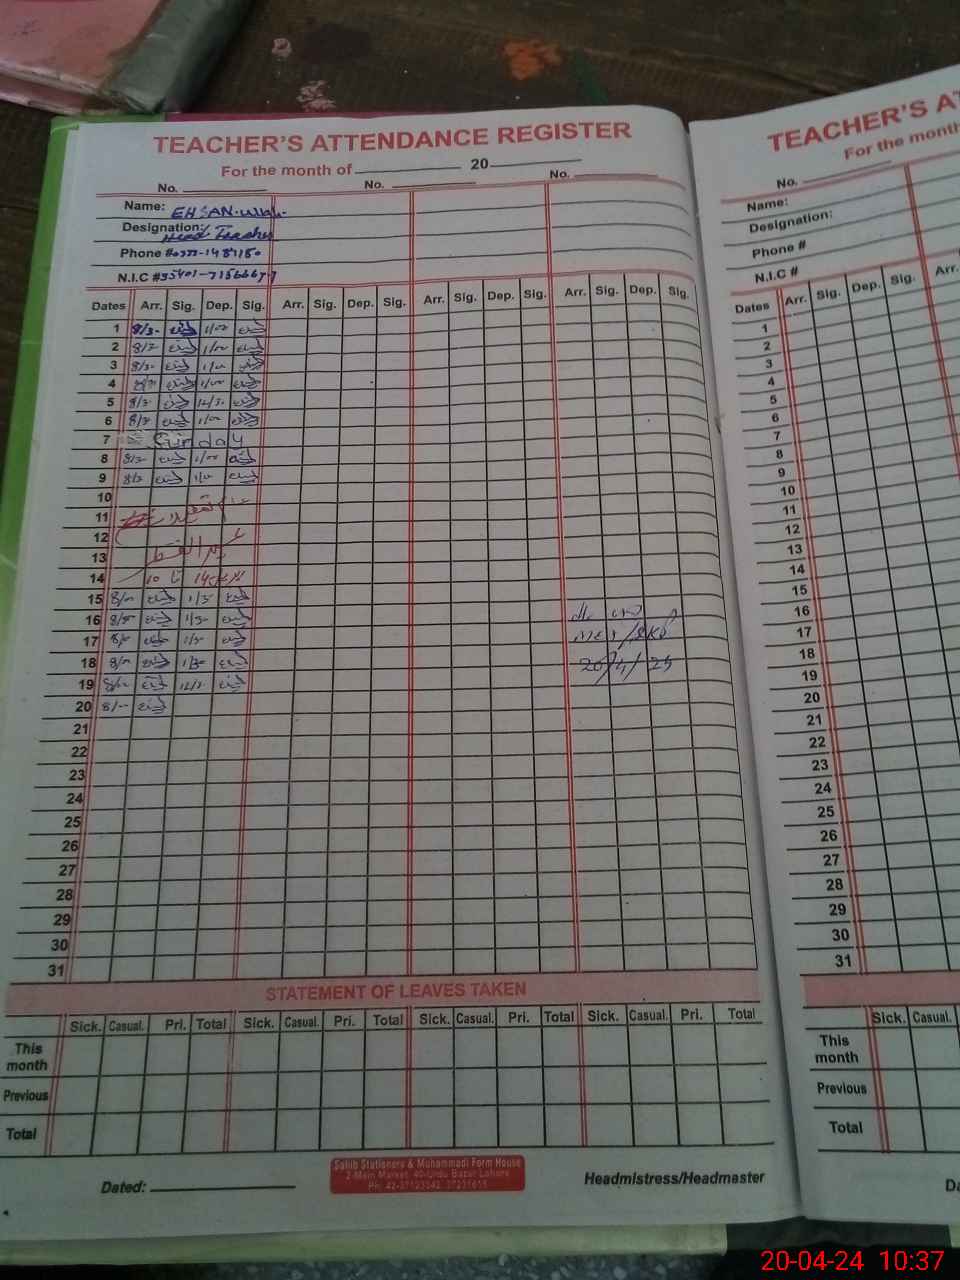 TEACHER'S ATTENDANCE REGISTER
For the month of 20
No. No. No.
Name: EHSAN
Designation: Head Teacher
Phone #
N.I.C #
Dates Arr. Sig. Dep. Sig. Arr. Sig. Dep. Sig. Arr. Sig. Dep. Sig. Arr. Sig. Dep. Sig.
1 8/30 1/00
2 8/30 1/00
3 8/30 1/00
4 8/30 1/00
5 8/30 12/30
6 8/30 1/00
7 Sunday
8 8/30 1/00
9 8/30 1/00
10
11
12 عید الفطر
13
14 10 تا 14
15 8/00 1/30
16 8/00 1/30
17 8/00 1/30
18 8/00 1/30
19 8/00 12/30
20 8/00
MEA/SKP
20/4/24
21
22
23
24
25
26
27
28
29
30
31
STATEMENT OF LEAVES TAKEN
Sick. Casual. Pri. Total Sick. Casual. Pri. Total Sick. Casual. Pri. Total Sick. Casual. Pri. Total
This month
Previous
Total
Dated:
Sahib Stationers & Muhammadi Form House
2-Main Market, 40-Urdu Bazar Lahore
Headmistress/Headmaster
TEACHER'S
For the month
No.
Name:
Designation:
Phone #
N.I.C #
Dates Arr. Sig. Dep. Sig. Arr.
1
2
3
4
5
6
7
8
9
10
11
12
13
14
15
16
17
18
19
20
21
22
23
24
25
26
27
28
29
30
31
Sick. Casual.
This month
Previous
Total
20-04-24 10:37